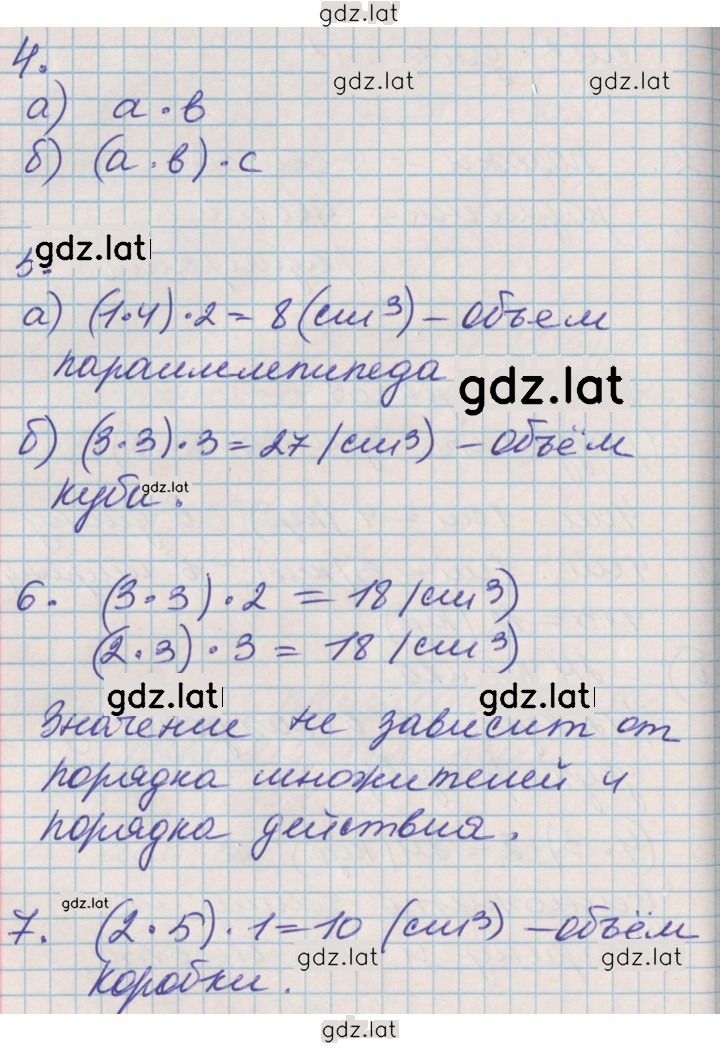 gdz.lat
4.
gdz.lat gdz.lat
а) а · в
б) (а · в) · с
gdz.lat
5.
а) (1·4) · 2 = 8 (см³) – объем
параллелепипеда
gdz.lat
б) (3·3) · 3 = 27 (см³) – объём
куба.
gdz.lat
6. (3·3) · 2 = 18 (см³)
(2·3) · 3 = 18 (см³)
gdz.lat gdz.lat
Значение не зависит от
порядка множителей и
порядка действия.
gdz.lat
7. (2·5) · 1 = 10 (см³) – объём
коробки.
gdz.lat gdz.lat
gdz.lat